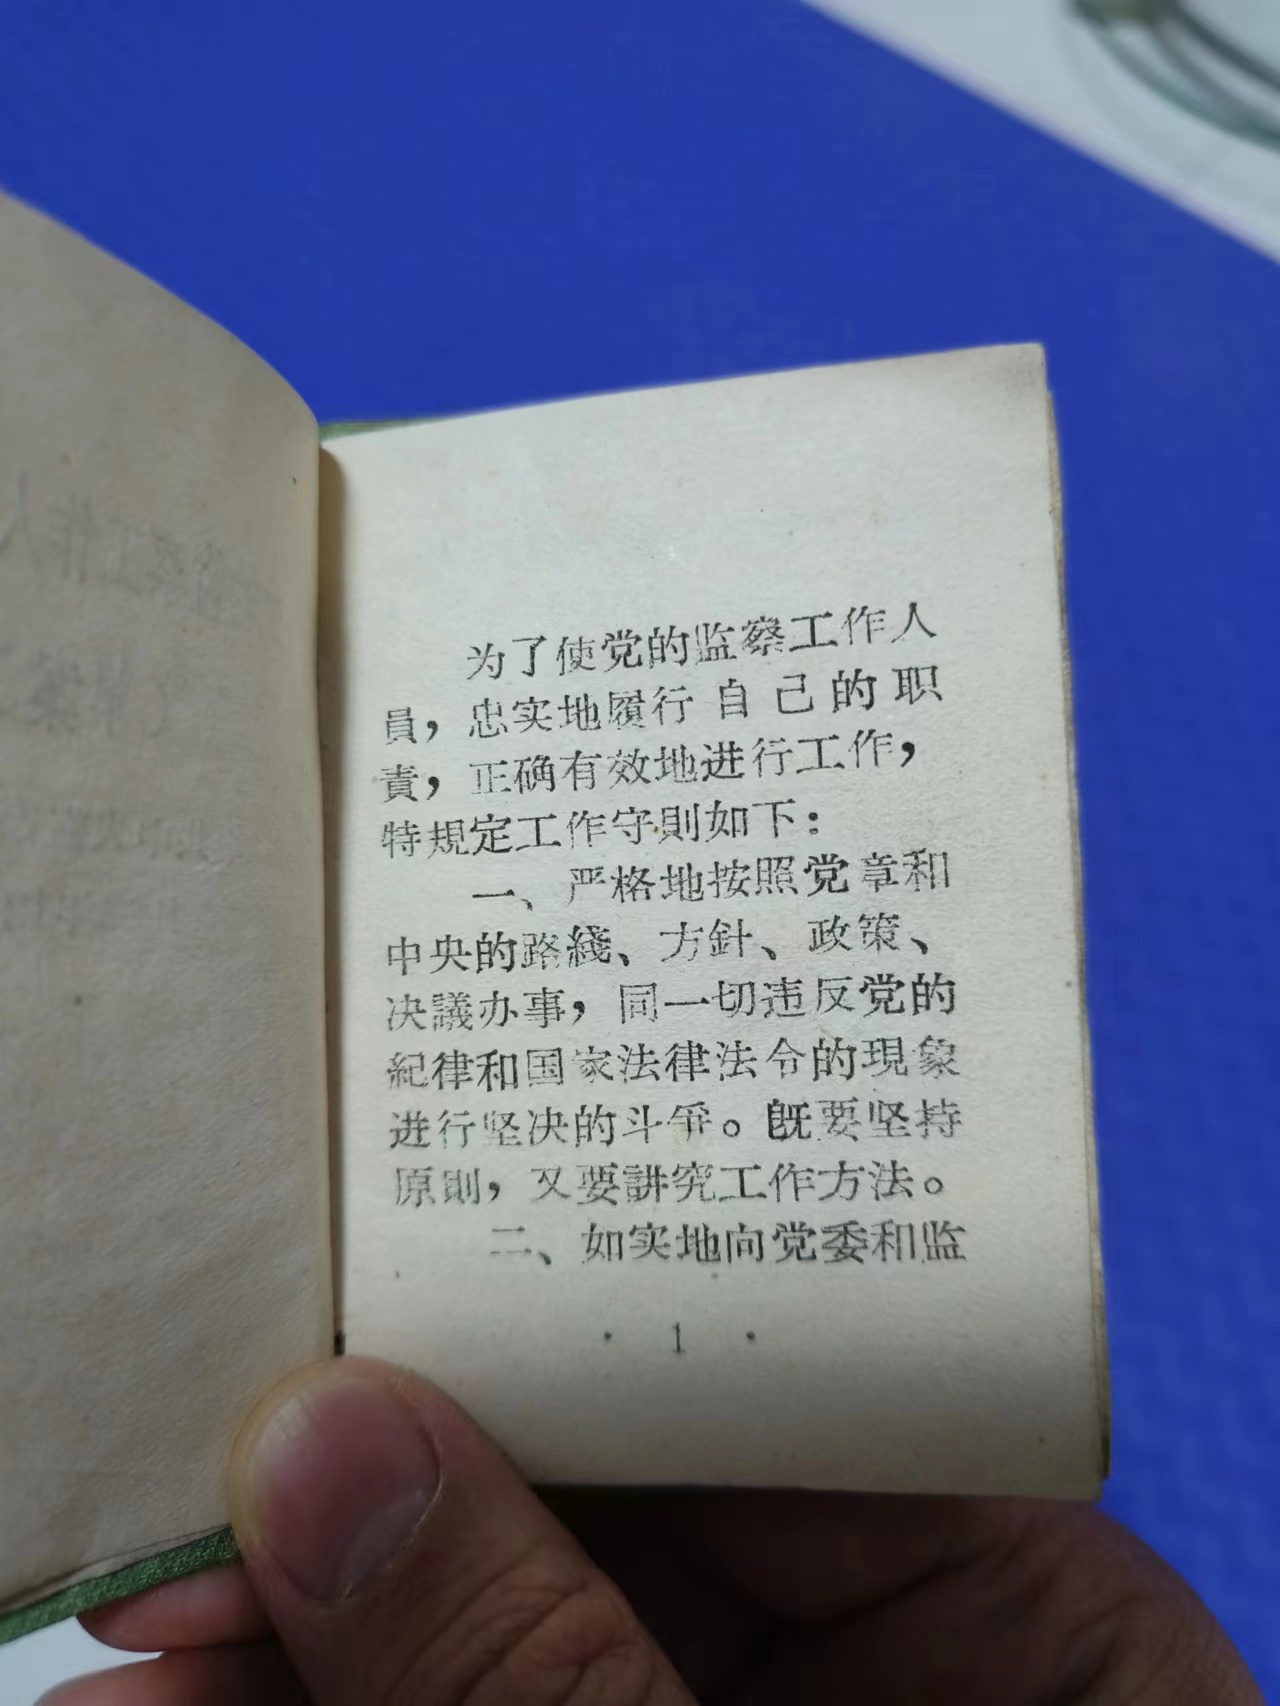 为了使党的监察工作人
員，忠实地履行自己的职
責，正确有效地进行工作，
特規定工作守則如下：
一、严格地按照党章和
中央的路綫、方針、政策、
决議办事，同一切违反党的
紀律和国家法律法令的現象
进行坚决的斗爭。既要坚持
原則，又要講究工作方法。
二、如实地向党委和监
· 1 ·